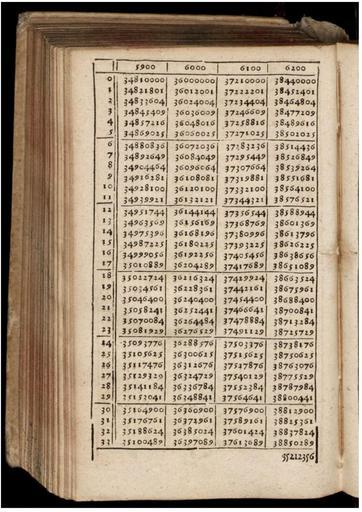 5900 6000 6100 6200
0 34810000 36000000 37210000 38440000
1 34821801 36012001 37222201 38452401
2 34833604 36024004 37234404 38464804
3 34845409 36036009 37246609 38477209
4 34857216 36048016 37258816 38489616
5 34869025 36060025 37271025 38502025
6 34880836 36072036 37283236 38514436
7 34892649 36084049 37295449 38526849
8 34904464 36096064 37307664 38539264
9 34916281 36108081 37319881 38551681
10 34928100 36120100 37332100 38564100
11 34939921 36132121 37344321 38576521
12 34951744 36144144 37356544 38588944
13 34963569 36156169 37368769 38601369
14 34975396 36168196 37380996 38613796
15 34987225 36180225 37393225 38626225
16 34999056 36192256 37405456 38638656
17 35010889 36204289 37417689 38651089
18 35022724 36216324 37429924 38663524
19 35034561 36228361 37442161 38675961
20 35046400 36240400 37454400 38688400
21 35058241 36252441 37466641 38700841
22 35070084 36264484 37478884 38713284
23 35081929 36276529 37491129 38725729
24 35093776 36288576 37503376 38738176
25 35105625 36300625 37515625 38750625
26 35117476 36312676 37527876 38763076
27 35129329 36324729 37540129 38775529
28 35141184 36336784 37552384 38787984
29 35153041 36348841 37564641 38800441
30 35164900 36360900 37576900 38812900
31 35176761 36372961 37589161 38825361
32 35188624 36385024 37601424 38837824
33 35200489 36397089 37613689 38850289
35212356